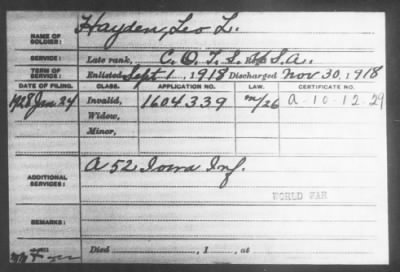 NAME OF SOLDIER: Hayden, Leo L.
SERVICE: Late rank, C. O. T. S. U.S.A.
TERM OF SERVICE: Enlisted Sept 1, 1918 Discharged Nov 30, 1918
DATE OF FILING. CLASS. APPLICATION NO. LAW. CERTIFICATE NO.
1928 Jan 24 Invalid, 1604339 m/26 A-10-12-29
Widow,
Minor,
ADDITIONAL SERVICES: A 52 Iowa Inf.
WORLD WAR
REMARKS:
Died , 1 , at